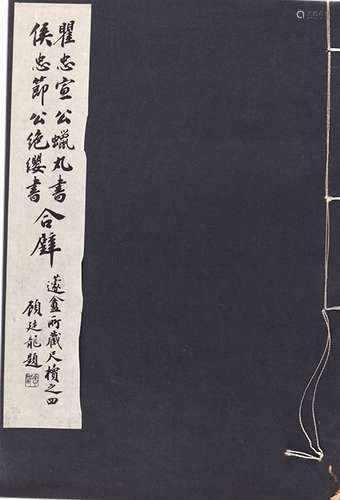 瞿忠宣公蠟丸書
侯忠節公絶纓書
合璧
蘧盦所藏尺牘之四
顧廷龍題